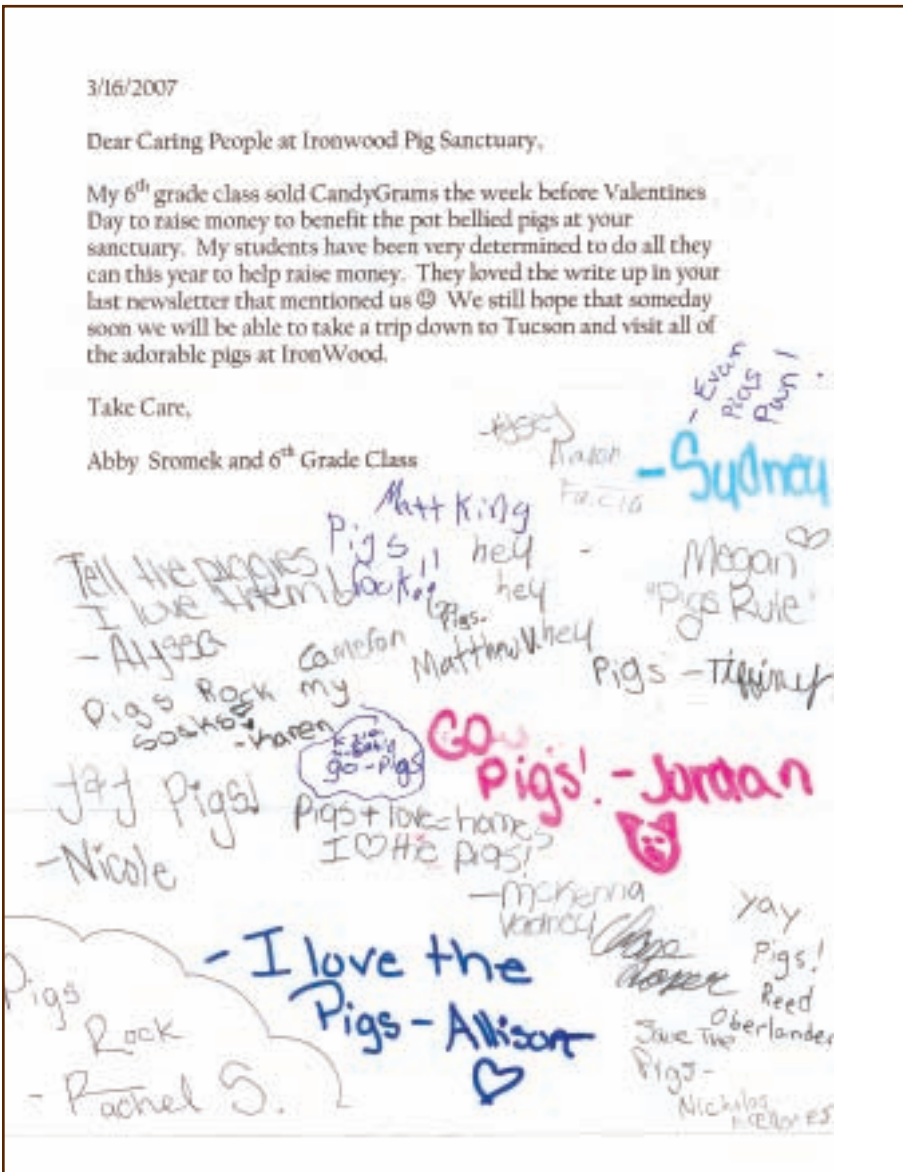 3/16/2007
Dear Caring People at Ironwood Pig Sanctuary,
My 6th grade class sold CandyGrams the week before Valentines
Day to raise money to benefit the pot bellied pigs at your
sanctuary. My students have been very determined to do all they
can this year to help raise money. They loved the write up in your
last newsletter that mentioned us ☺ We still hope that someday
soon we will be able to take a trip down to Tucson and visit all of
the adorable pigs at IronWood.
Take Care,
Abby Sromek and 6th Grade Class
- Evan
Pigs
Pwn!
-Sydney
Matt King
Pigs
Rock!!
hey
hey
hey
Pigs.
Matthew V.
Megan
"Pigs Rule"
Tell the piggies
I love them
- Alyssa
Cameron
Pigs - Tiffiney
Pigs Rock my
socks!
-Karen
go-pigs
Go
Pigs! - Jordan
Pigs!
-Nicole
Pigs + love = homes
I ♡ the pigs!
- McKenna
Chase
yay
Pigs!
Reed
Oberlander
Save The
Pigs-
Nicholas
- I love the
Pigs - Allison
♡
Pigs
Rock
- Rachel S.